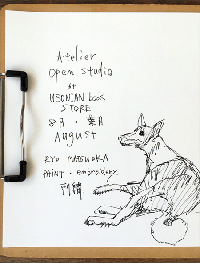 Atelier
Open Studio
at
BOOK
STORE
8月・葉月
August
RYO MATSUOKA
PAINT・embroidery
刺繍